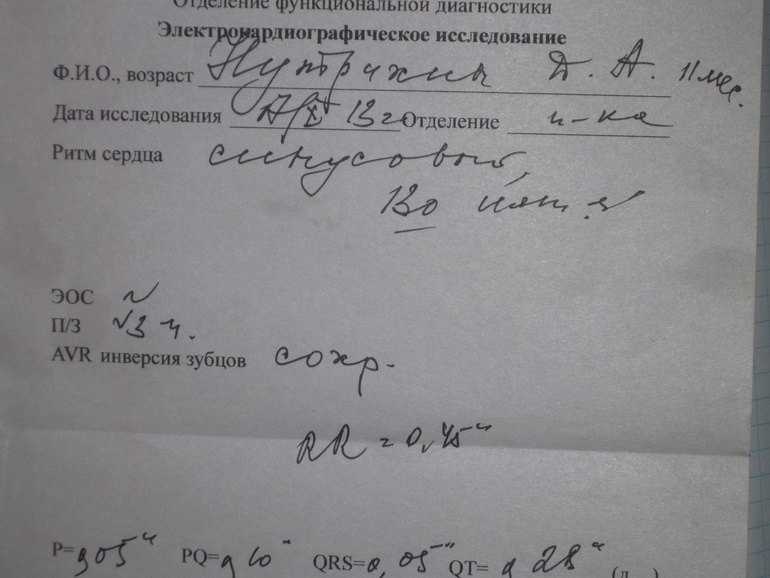 Отделение функциональной диагностики
Электрокардиографическое исследование
Ф.И.О., возраст Д. А. 11 мес.
Дата исследования 13г Отделение п-ка
Ритм сердца синусовый,
130
ЭОС N
П/З V3 ч.
AVR инверсия зубцов сохр.
RR = 0,45"
P= 0,05" PQ= 0,10" QRS= 0,05" QT= 0,28"